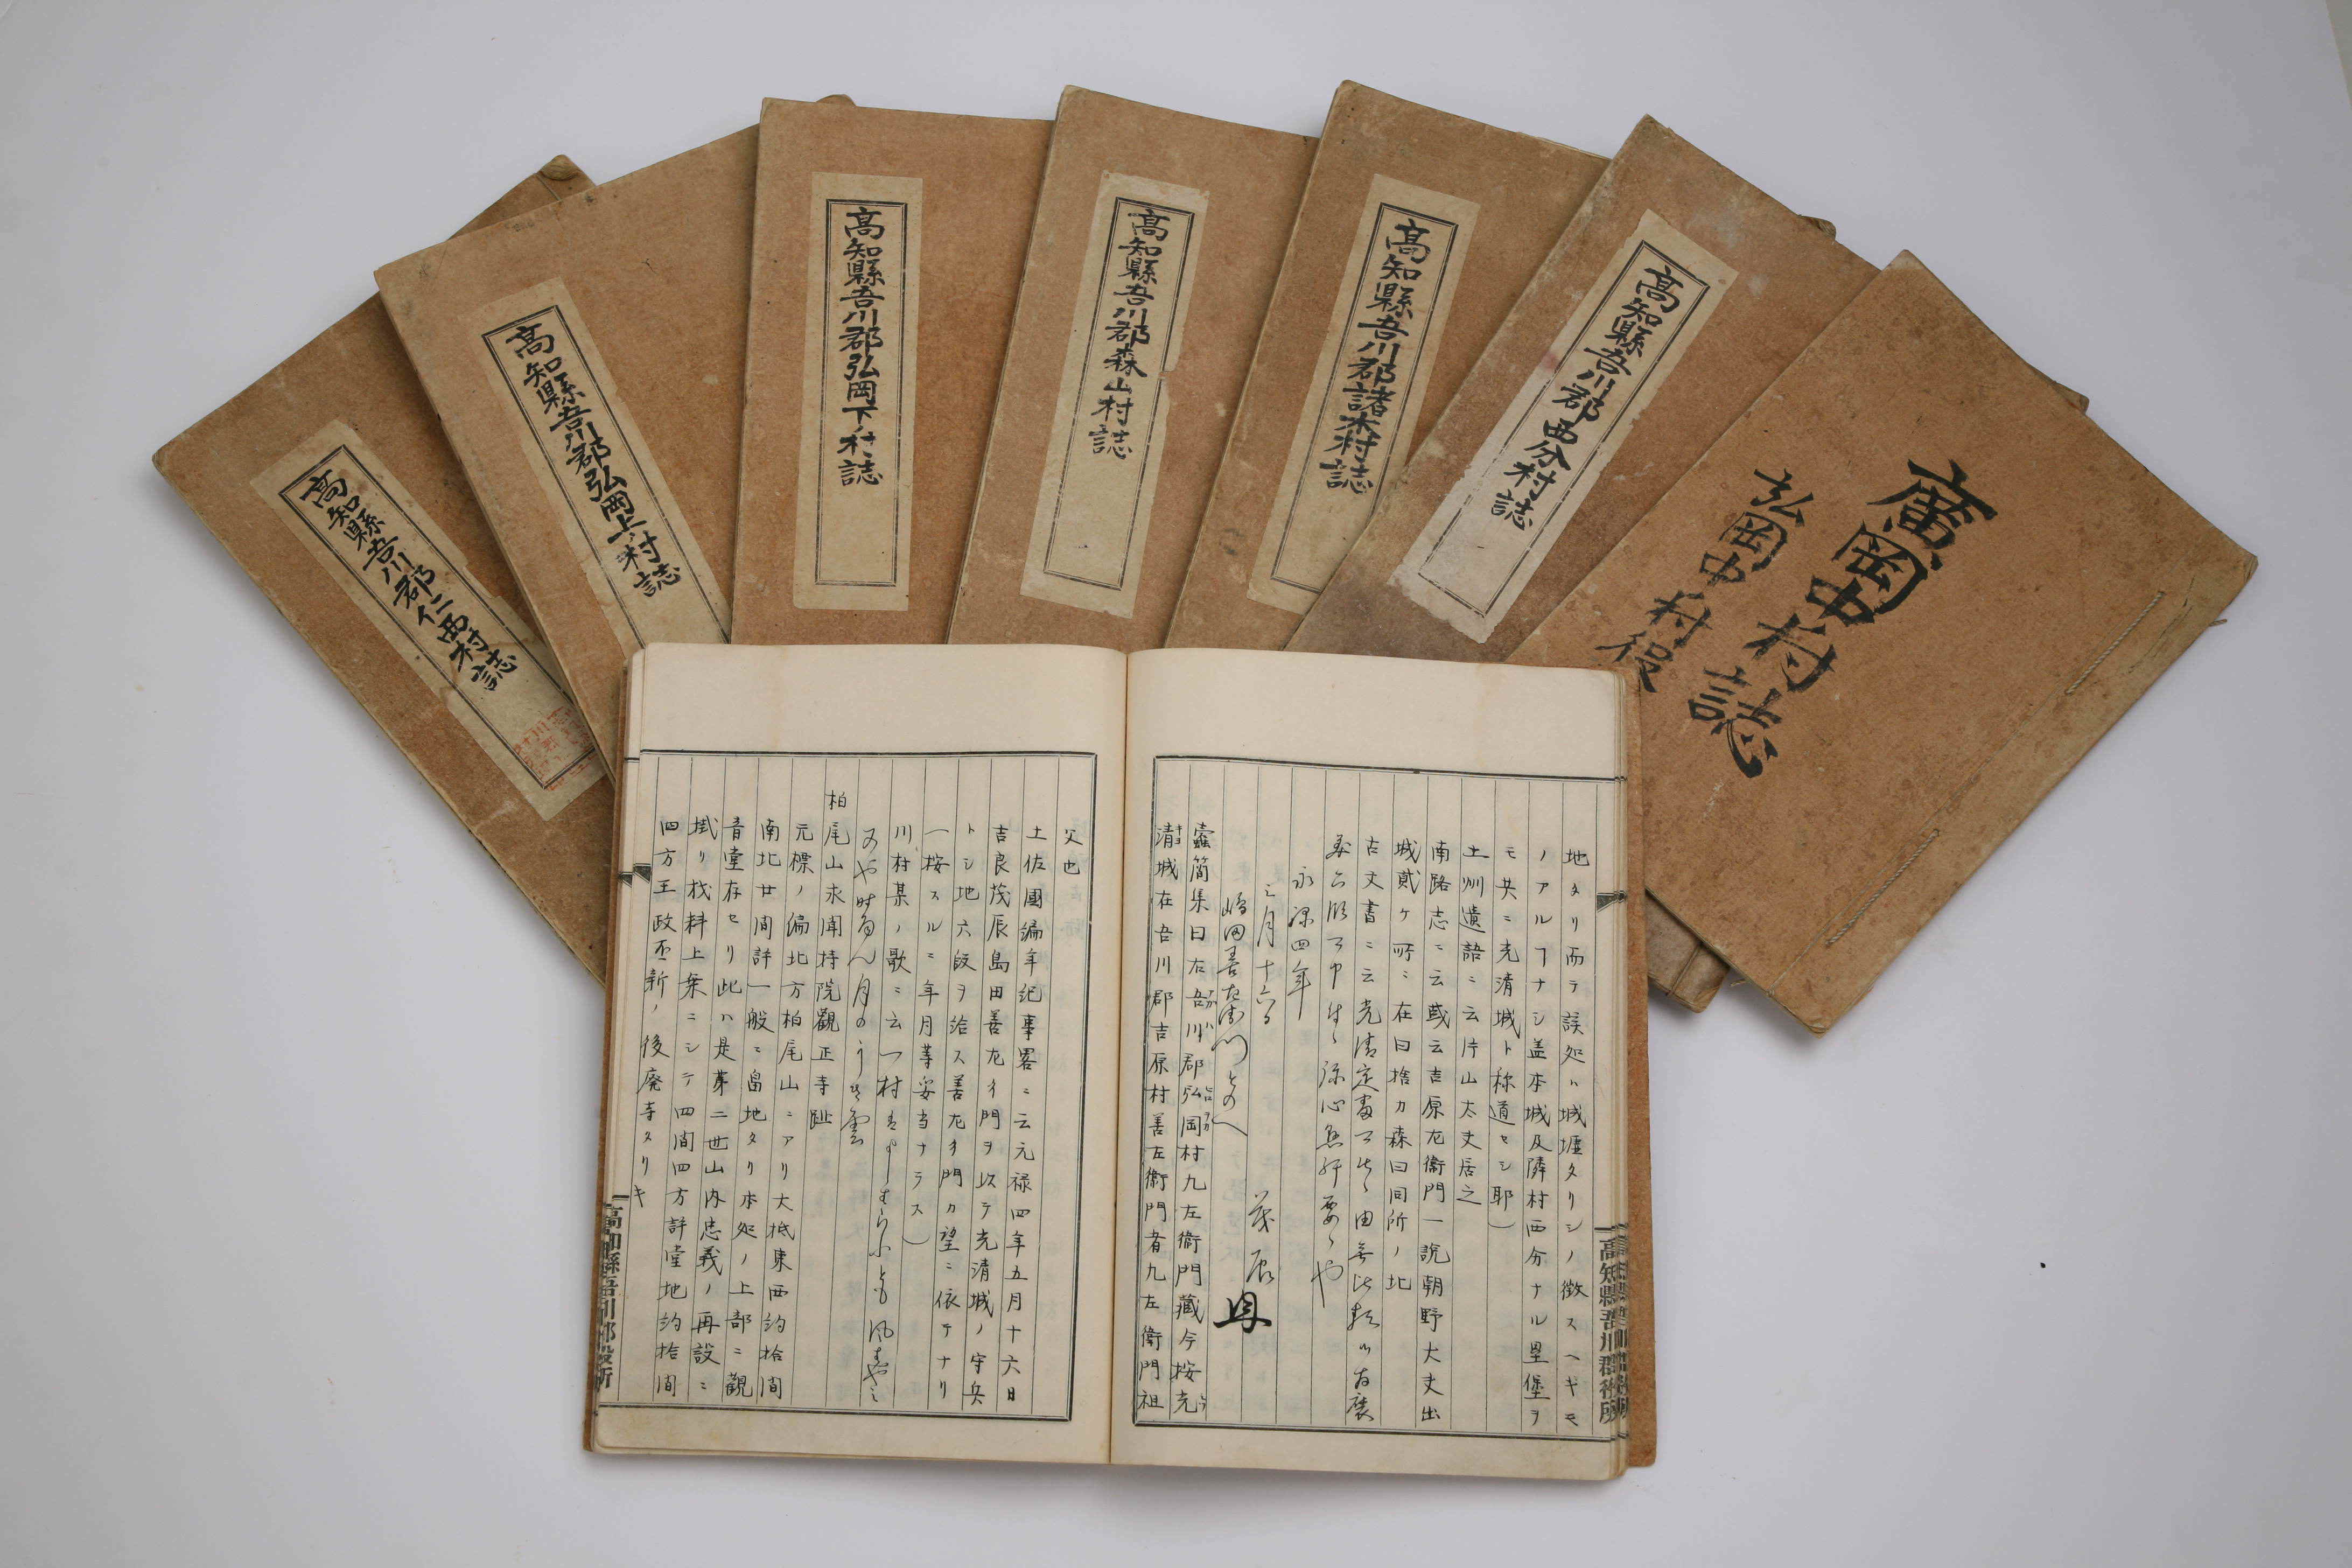 高知縣吾川郡仁西村誌
高知縣吾川郡弘岡上ノ村誌
高知縣吾川郡弘岡下ノ村誌
高知縣吾川郡森山村誌
高知縣吾川郡諸木村誌
高知縣吾川郡西分村誌
廣岡中村誌
弘岡中村役
地タリ而テ該処ハ城墟タリシノ徴スヘキモ
ノアルヿナシ盖本城及隣村西分ナル里堡ヲ
モ共ニ光清城ト称道セシ耶)
土州遺語ニ云片山太丈居之
南路志ニ云或云吉原左衞門一説朝野大丈出
城貳ケ所ニ在曰捨カ森曰同所ノ北
古文書ニ云光清定番
永禄四年
三月十六日
嶋田善左衛門とのへ
茂辰
蠧簡集曰右吾川郡弘岡村九左衞門藏今按光
清城在吾川郡吉原村善左衞門者九左衞門祖
父也
土佐國編年紀事畧ニ云元禄四年五月十六日
吉良茂辰島田善左衛門ヲ以テ光清城ノ守兵
トシ地六段ヲ給ス善左衛門カ望ニ依テナリ
(按スルニ年月等妥当ナラス)
川村某ノ歌ニ云
柏尾山求聞持院觀正寺趾
元標ノ偏北方柏尾山ニアリ大抵東西約拾間
南北廿間許一般ニ畠地タリ本処ノ上部ニ觀
音堂存セリ此ハ是第二世山内忠義ノ再設ニ
掛リ材料上棄ニシテ四間四方許堂地約拾間
四方王政丕新ノ後廃寺タリキ
高知縣吾川郡役所
高知縣吾川郡役所